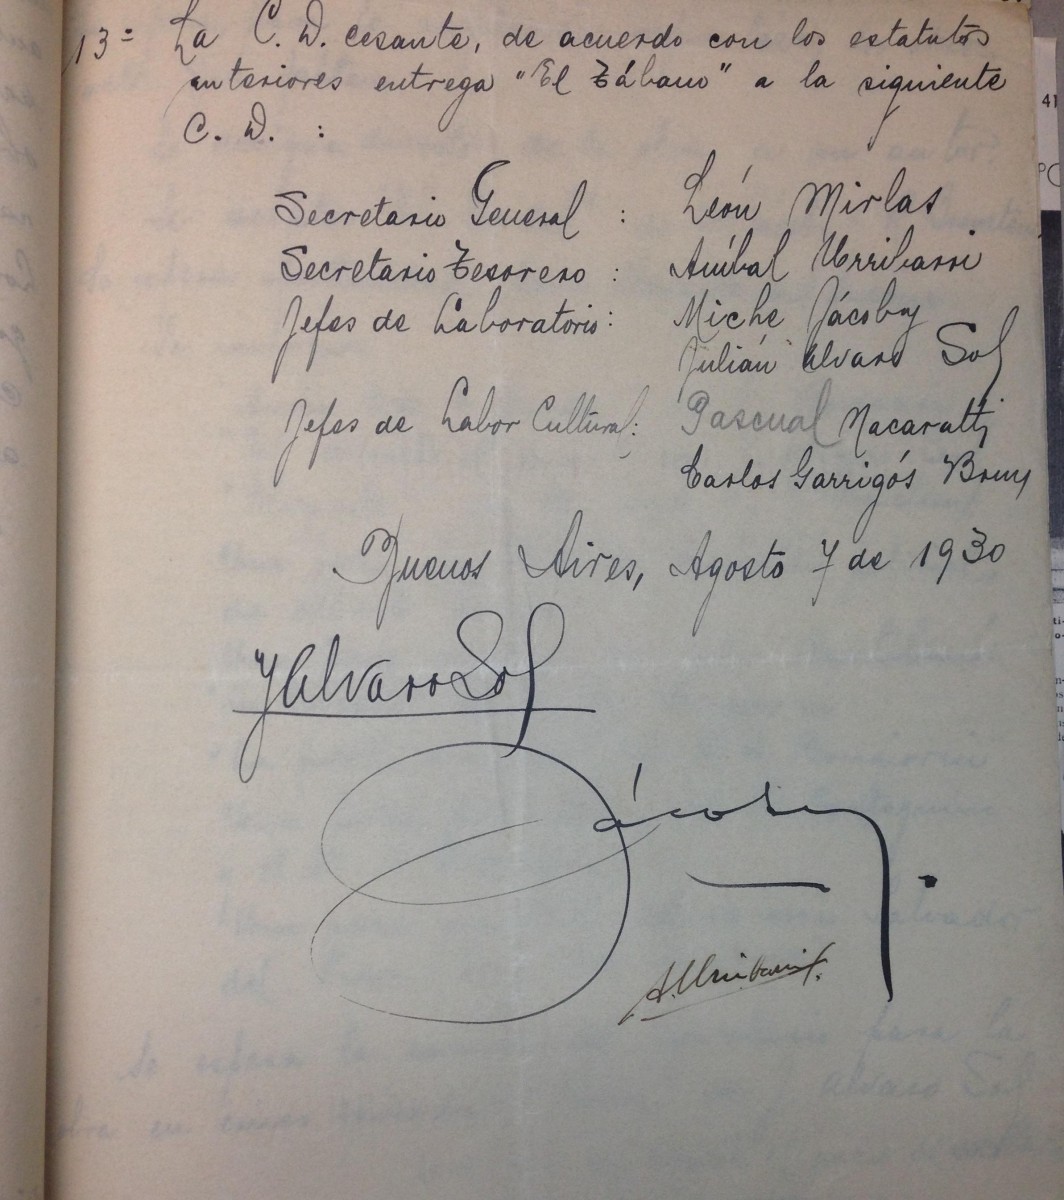 13º La C. D. cesante, de acuerdo con los estatutos
anteriores entrega "El Tábano" a la siguiente
C. D. :
Secretario General : León Mirlas
Secretario Tesorero : Aníbal Urribarri
Jefes de Laboratorio: Miche Jácoby
Julián Alvaro Sol
Jefes de Labor Cultural: Pascual Nacaratti
Carlos Garrigós
Buenos Aires, Agosto 7 de 1930
J Alvaro Sol
Jácoby.
A. Urribarri
41